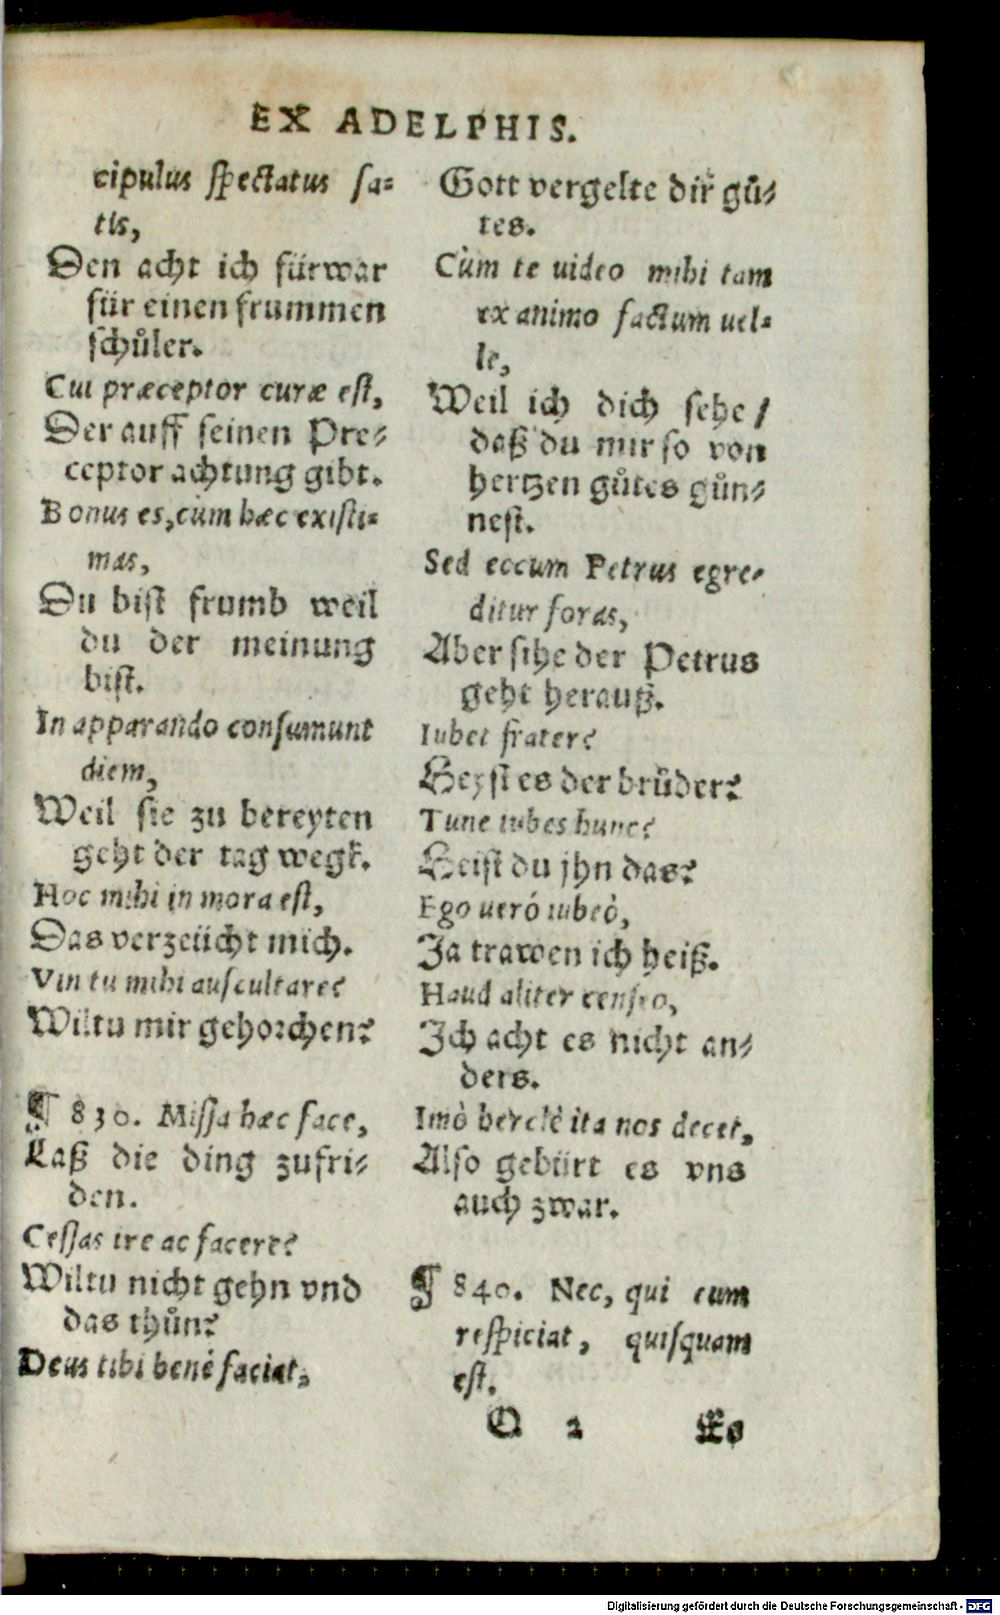 EX ADELPHIS.
cipulus spectatus sa-
tis,
Den acht ich fürwar
für einen frummen
schůler.
Cui præceptor curæ est,
Der auff seinen Pre-
ceptor achtung gibt.
Bonus es, cùm hæc existi-
mas,
Du bist frumb weil
du der meinung
bist.
In apparando consumunt
diem,
Weil sie zu bereyten
geht der tag wegk.
Hoc mihi in mora est,
Das verzeücht mich.
Vin tu mihi auscultare?
Wiltu mir gehorchen?
¶ 830. Missa hæc face,
Laß die ding zufri-
den.
Cessas ire ac facere?
Wiltu nicht gehn vnd
das thůn?
Deus tibi benè faciat,
Gott vergelte dir gů-
tes.
Cùm te uideo mihi tam
ex animo factum uel-
le,
Weil ich dich sehe /
daß du mir so von
hertzen gůtes gün-
nest.
Sed eccum Petrus egre-
ditur foras,
Aber sihe der Petrus
geht herauß.
Iubet frater?
Heyst es der brůder?
Tune iubes hunc?
Heist du jhn das?
Ego uerò iubeò,
Ja trawen ich heiß.
Haud aliter censeo,
Ich acht es nicht an-
ders.
Imò herclè ita nos decet,
Also gebürt es vns
auch zwar.
¶ 840. Nec, qui eum
respiciat, quisquam
est.
O 2 Es
Digitalisierung gefördert durch die Deutsche Forschungsgemeinschaft - DFG